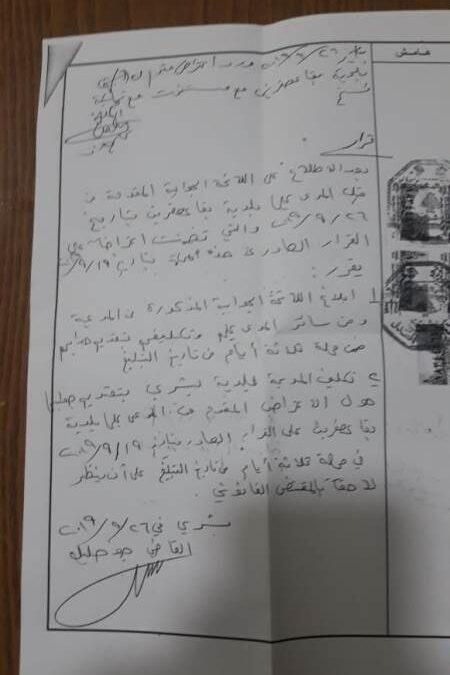 هامش
بتاريخ ٢٦/٩/٢٠١٩ ورد اعتراض من
بلدية بقاعصفرين مع مستندات مع
نسخ
قرار
بعد الاطلاع على اللائحة الجوابية المقدمة من
قبل المدعى عليها بلدية بقاعصفرين بتاريخ
٢٦/٩/٢٠١٩ والتي تضمنت اعتراضا على
القرار الصادر عن هذه بتاريخ ١٩/٩/٢٠١٩
يقرر:
١ ابلاغ اللائحة الجوابية المذكورة من المدعية
ومن سائر المدعى عليهم وتكليفهم بتقديم جوابهم
ضمن مهلة ثلاثة أيام من تاريخ التبليغ
٢ تكليف المدعية بلدية بشري بتقديم جوابها
حول الاعتراض المقدم من المدعى عليها بلدية
بقاعصفرين على القرار الصادر بتاريخ ١٩/٩/٢٠١٩
في مهلة ثلاثة أيام من تاريخ التبليغ على أن ينظر
لاحقاً بالمقتضى القانوني.
بشري في ٢٦/٩/٢٠١٩
القاضي جو خليل